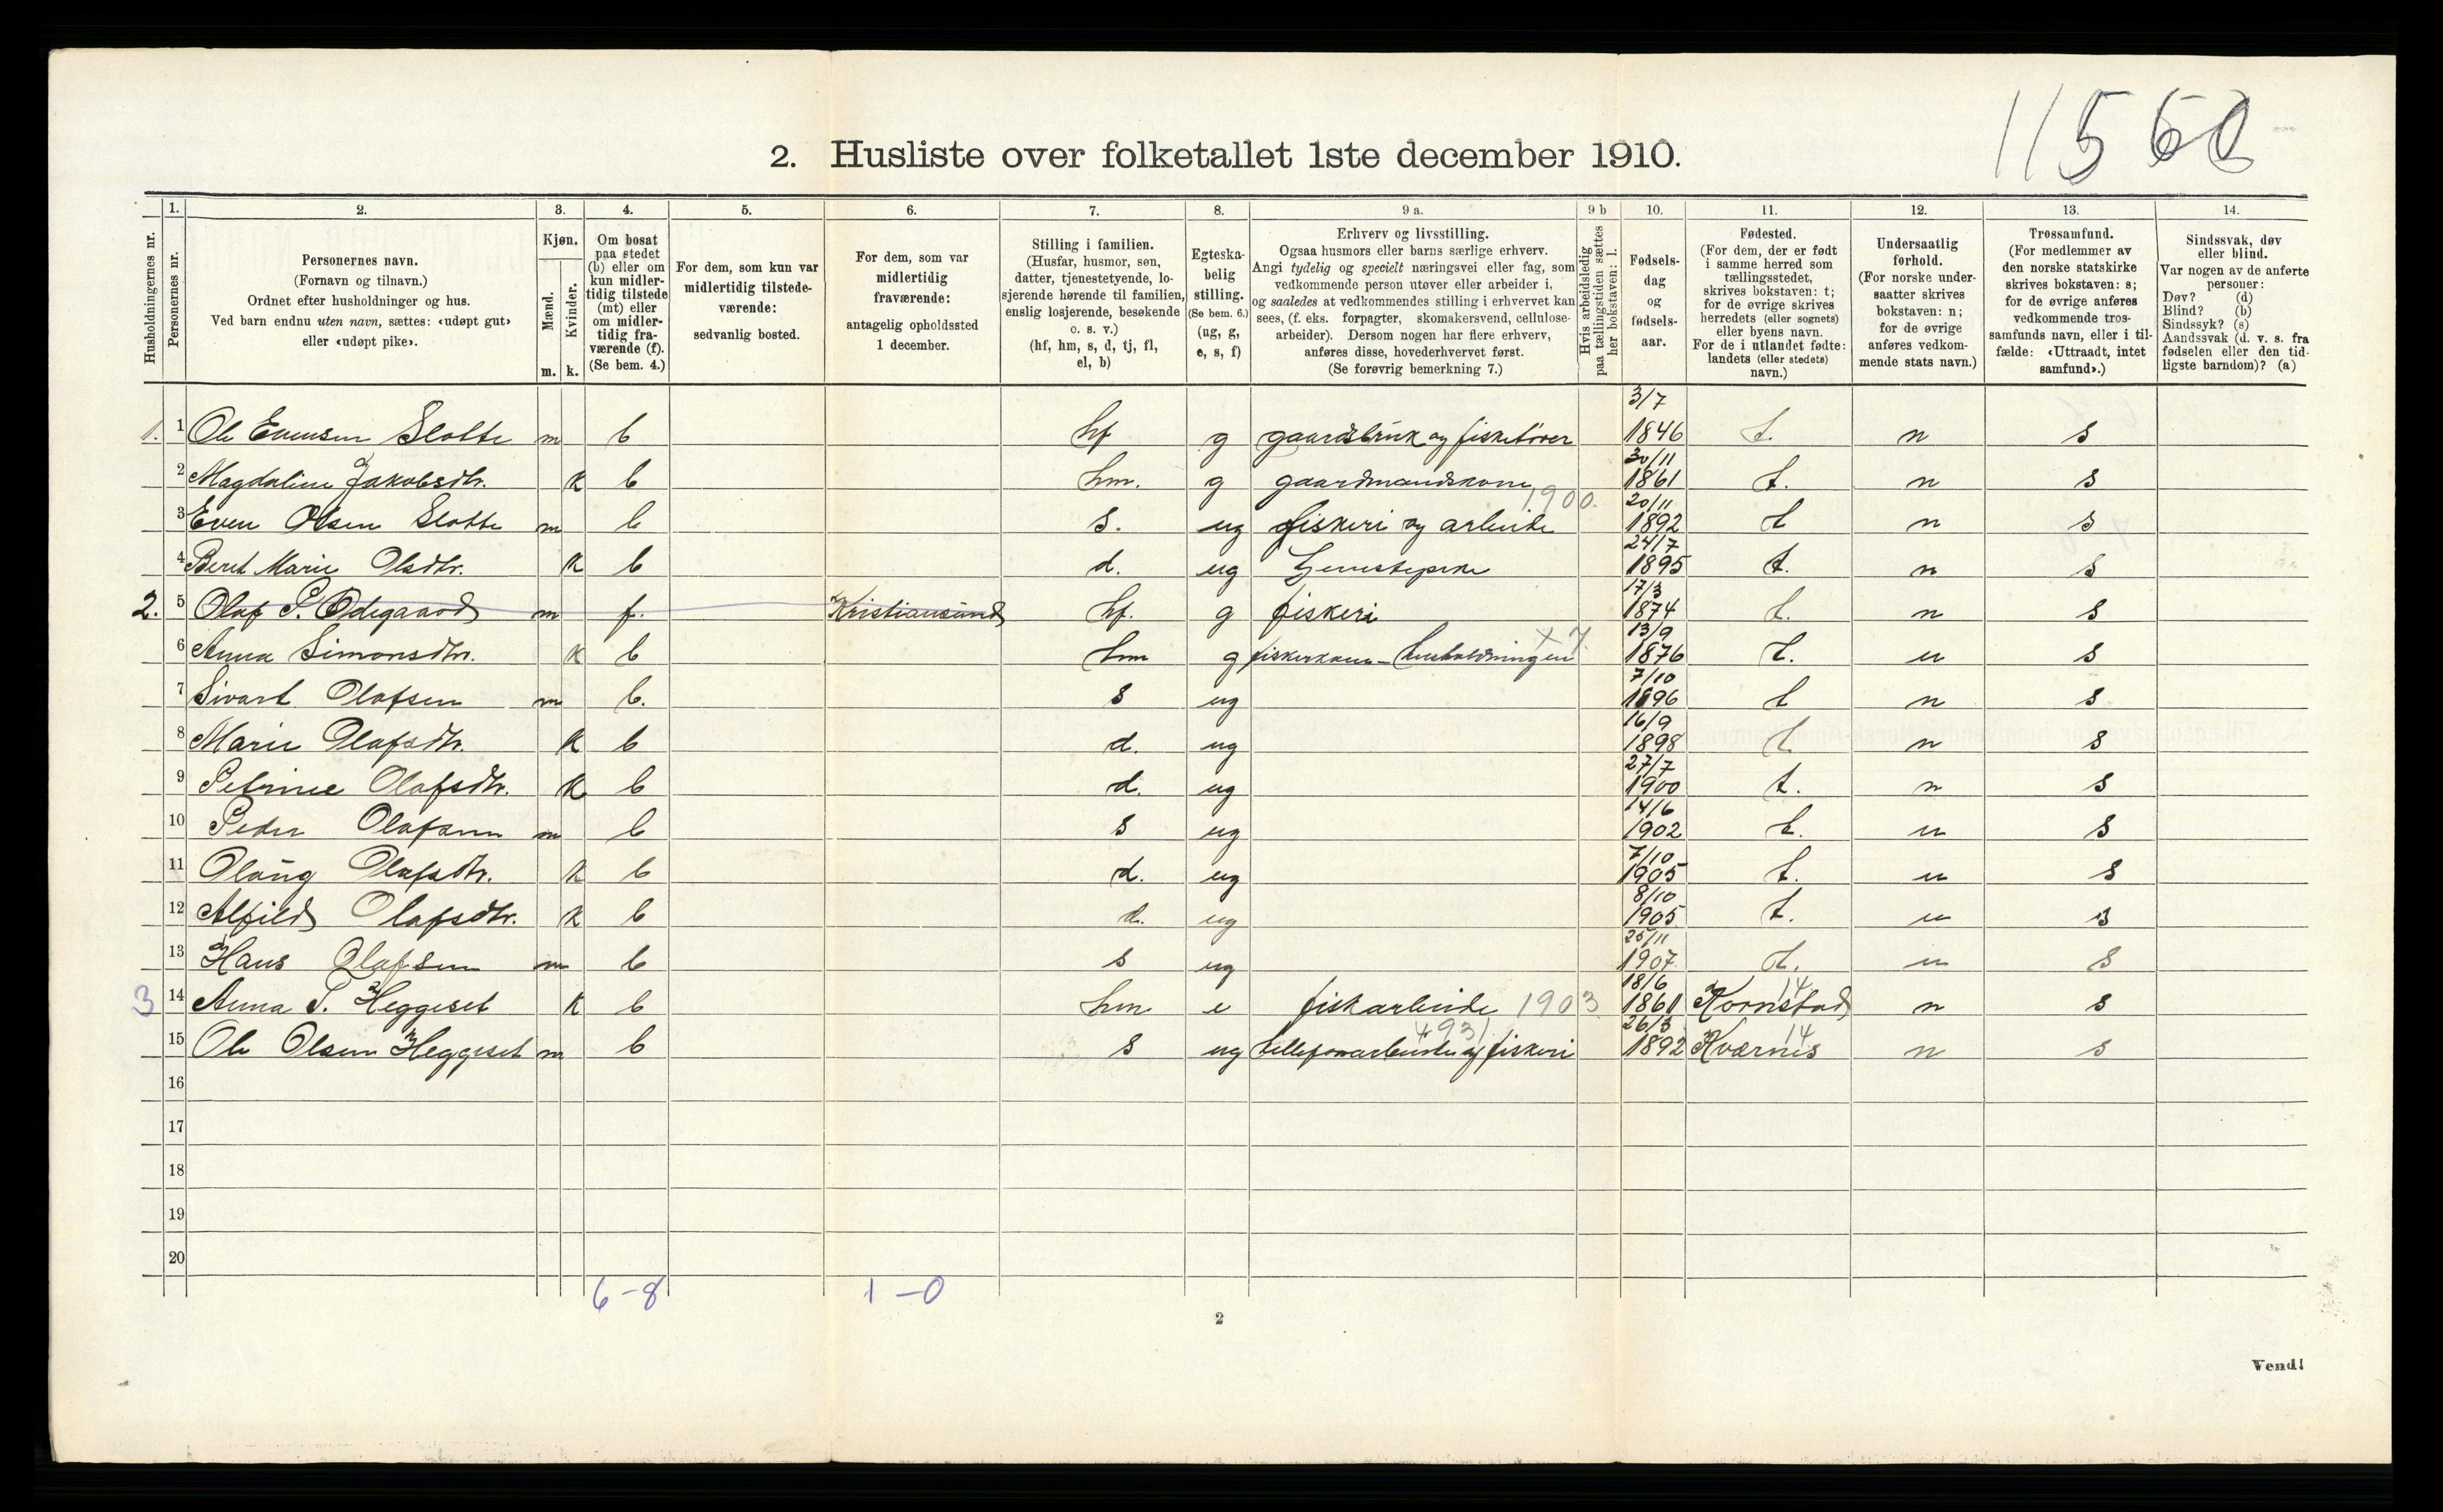 11560
2. Husliste over folketallet 1ste december 1910.
Husholdningernes nr.
1. Personernes nr.
2. Personernes navn.
(Fornavn og tilnavn.)
Ordnet efter husholdninger og hus.
Ved barn endnu uten navn, sættes: «udøpt gut»
eller «udøpt pike».
3. Kjøn.
Mænd. m.
Kvinder. k.
4. Om bosat
paa stedet
(b) eller om
kun midler-
tidig tilstede
(mt) eller
om midler-
tidig fra-
værende (f).
(Se bem. 4.)
5. For dem, som kun var
midlertidig tilstede-
værende:
sedvanlig bosted.
6. For dem, som var
midlertidig
fraværende:
antagelig opholdssted
1 december.
7. Stilling i familien.
(Husfar, husmor, søn,
datter, tjenestetyende, lo-
sjerende hørende til familien,
enslig losjerende, besøkende
o. s. v.)
(hf, hm, s, d, tj, fl,
el, b)
8. Egteska-
belig
stilling.
(Se bem. 6.)
(ug, g,
e, s, f)
9 a. Erhverv og livsstilling.
Ogsaa husmors eller barns særlige erhverv.
Angi tydelig og specielt næringsvei eller fag, som
vedkommende person utøver eller arbeider i,
og saaledes at vedkommendes stilling i erhvervet kan
sees, (f. eks. forpagter, skomakersvend, cellulose-
arbeider). Dersom nogen har flere erhverv,
anføres disse, hovederhvervet først.
(Se forøvrig bemerkning 7.)
9 b Hvis arbeidsledig
paa tællingstiden sættes
her bokstaven: l.
10. Fødsels-
dag
og
fødsels-
aar.
11. Fødested.
(For dem, der er født
i samme herred som
tællingsstedet,
skrives bokstaven: t;
for de øvrige skrives
herredets (eller sognets)
eller byens navn.
For de i utlandet fødte:
landets (eller stedets)
navn.)
12. Undersaatlig
forhold.
(For norske under-
saatter skrives
bokstaven: n;
for de øvrige
anføres vedkom-
mende stats navn.)
13. Trossamfund.
(For medlemmer av
den norske statskirke
skrives bokstaven: s;
for de øvrige anføres
vedkommende tros-
samfunds navn, eller i til-
fælde: «Uttraadt, intet
samfund».)
14. Sindssvak, døv
eller blind.
Var nogen av de anførte
personer:
Døv? (d)
Blind? (b)
Sindssyk? (s)
Aandssvak (d. v. s. fra
fødselen eller den tid-
ligste barndom)? (a)
1. 1 Ole Evensen Slotte m b hf g gaardsbruk og fisketører 3/7 1846 t. n s
2 Magdaline Jakobsdtr. k b hm. g gaardmandskone 30/11 1861 t. n s
3 Even Olsen Slotte m b s. ug fiskeri og arbeide 1900. 20/11 1892 t n s
4 Beret Marie Olsdtr. k b d. ug Tjenestepike 24/7 1895 t. n s
2. 5 Olaf P. Ødegaard m f. Kristiansund hf. g fiskeri 17/3 1874 t. n s
6 Anna Simonsdtr. k b hm g fiskerkone - husholdningen x 7. 13/9 1876 t. n s
7 Sivart Olafsen m b. s ug 7/10 1896 t n s
8 Marie Olafsdtr. k b d. ug 16/9 1898 t n s
9 Petrine Olafsdtr. k b d. ug 27/7 1900 t. n s
10 Peder Olafsen m b s ug 14/6 1902 t. n s
11 Olaug Olafsdtr. k b d. ug 7/10 1905 t. n s
12 Alfild Olafsdtr. k b d. ug 8/10 1905 t. n s
13 Hans Olafsen m b s ug 25/11 1907 t. n s
3 14 Anna T. Heggeset k b hm e fiskarbeide 1903 18/6 1861 Kornstad 14 n s
15 Ole Olsen Heggeset m b s ug tellefonarbeide og fiskeri 4931 26/3 1892 Kværnis 14 n s
16
17
18
19
20
6-8 1-0
2
Vend!